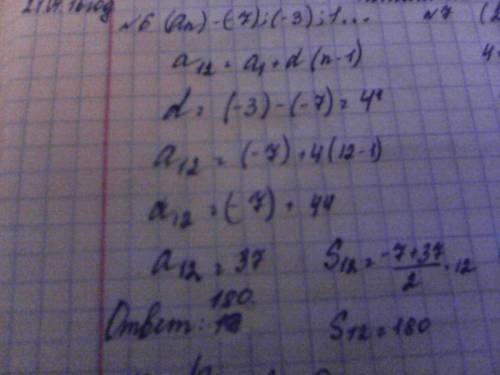 №6 (an) -(-7);(-3);1... №7
a12 = a1 + d(n-1)
d = (-3)-(-7) = 4
a12 = (-7)+4(12-1)
a12 = (-7) + 44
a12 = 37
S12 = -7+37/2 · 12
Ответ: 180.
S12 = 180